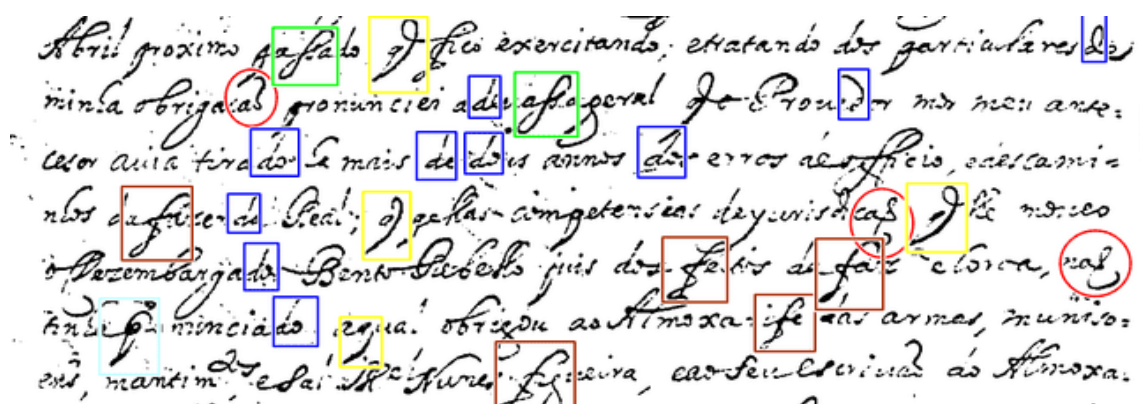 Abril proximo passado q fico exercitando, etratando dos particulares de
minha obrigacaõ pronunciei adeuassa geral q o Prouedor mor meu ante=
cesor auia tirado de mais de dois annos dos erros do officio, edescami=
nhos da fazen de Real; q pellas competenseas de jurisdicaõ q lhe moueo
o Dezembargador Bento Rebello juis dos feitos da faz e coroa, naõ
tinha pronunciado aqual obrigou ao Almoxarife das armas, muniso=
ens, mantim.tos e sal M.el Nunes figueira, eao seu escriuaõ do Almoxa.